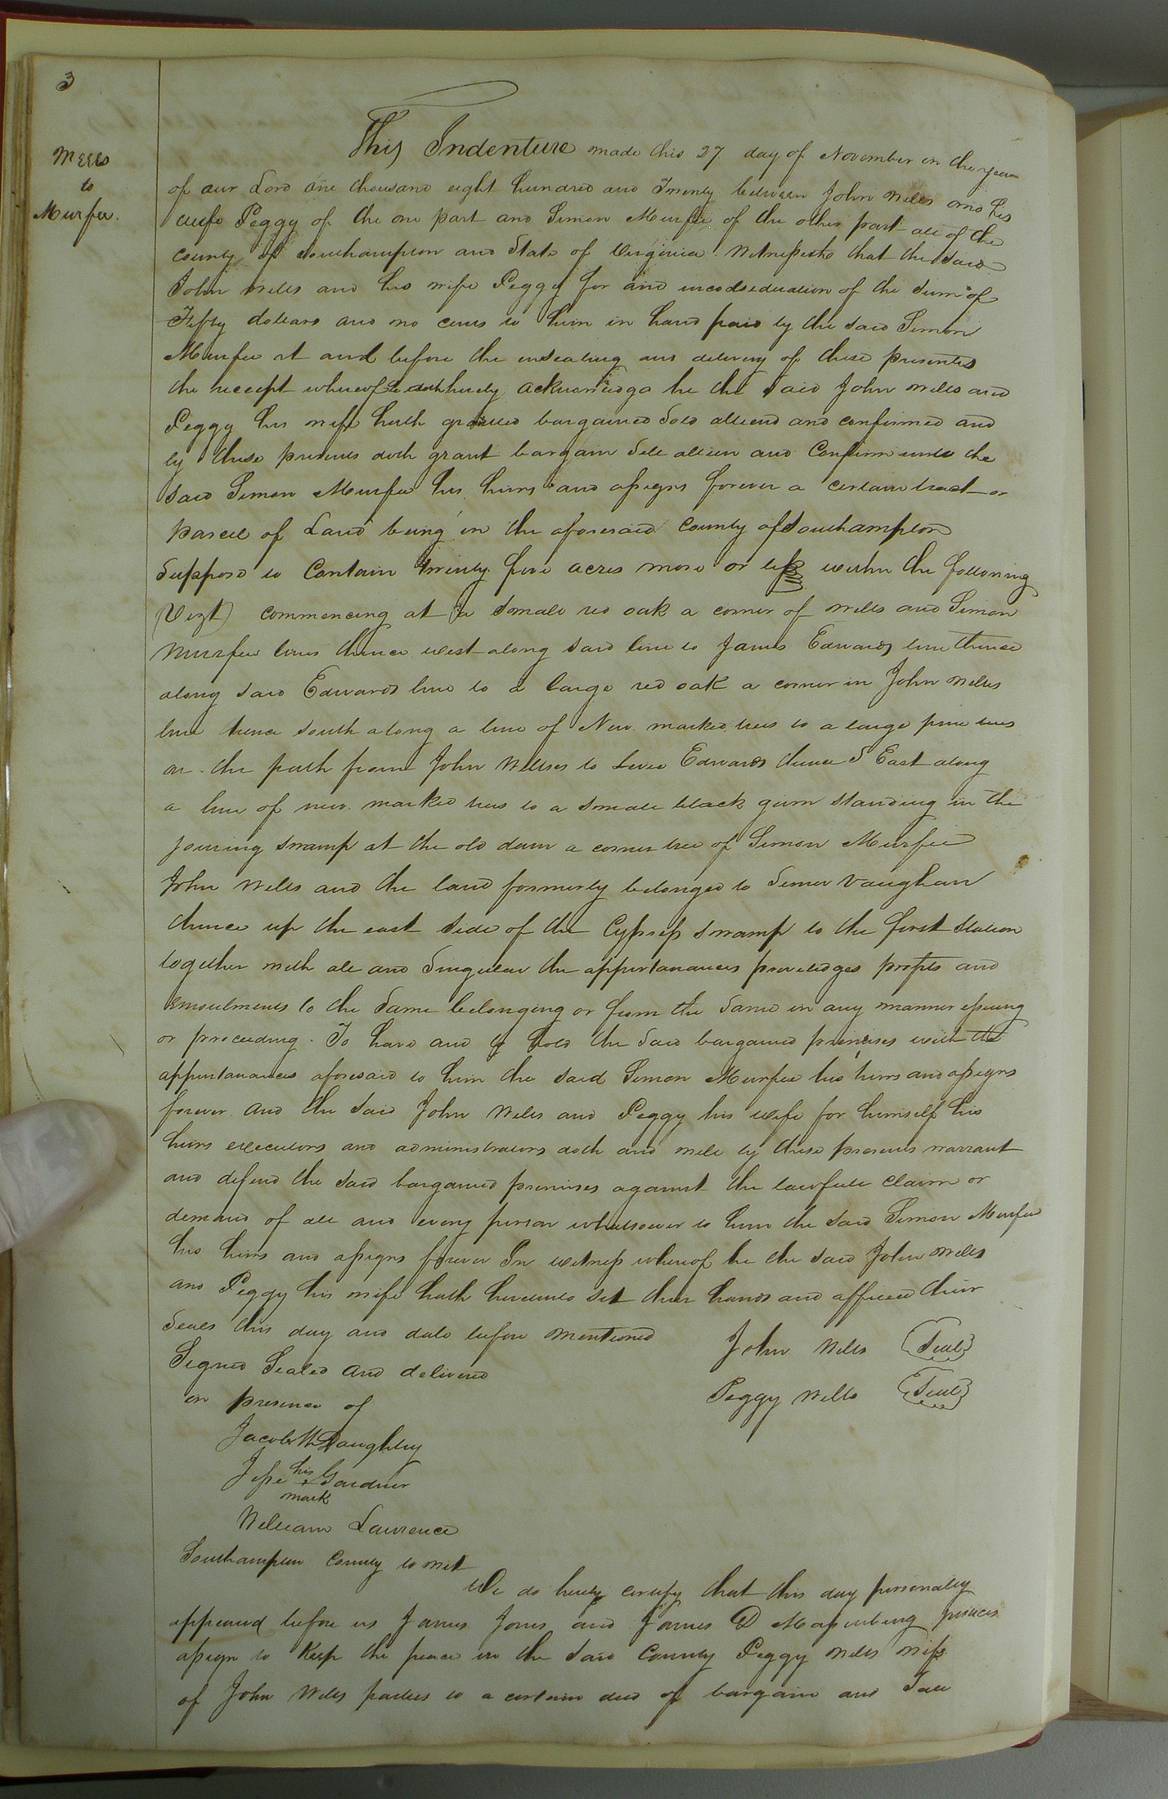 3
Wells
to
Murfee.
This Indenture made this 27 day of November in the year
of our Lord one thousand eight hundred and Twenty between John Wells and his
wife Peggy of the one part and Simon Murfee of the other part all of the
county of Southampton and State of Virginia Witnesseth that the said
John Wells and his wife Peggy for and in consideration of the sum of
Fifty dollars and no cents to him in hand paid by the said Simon
Murfee at and before the ensealing and delivery of these presents
the receipt whereof he doth hereby acknowledge he the said John Wells and
Peggy his wife hath granted bargained sold aliend and confirmed and
by these presents doth grant bargain Sell alien and Confirm unto the
said Simon Murfee his heirs and assigns forever a certain tract or
parcel of Land being in the aforesaid County of Southampton
Suppose to Contain twenty five acres more or less within the following
(Vizt) commencing at a small red oak a corner of Wells and Simon
Murfee lines thence west along said line to James Edwards line thence
along said Edwards line to a large red oak a corner in John Wells
line thence south along a line of New marked trees to a large pine trees
on the path from John Wellses to Levie Edwards thence S East along
a line of new marked trees to a small black gum standing in the
joining swamp at the old dam a corner tree of Simon Murfee
John Wells and the land formerly belonged to Vaughan
thence up the east side of the Cypress swamp to the first station
together with all and Singular the appurtanances priviledges profits and
emoulments to the same belonging or from the same in any manner issuing
or proceeding. To have and to hold the said bargained premises with the
appurtanances aforesaid to him the said Simon Murfee his heirs and assigns
forever and the said John Wells and Peggy his wife for himself his
heirs executors and administrators doth and will by these presents warrant
and defend the said bargained premises against the lawfull claim or
demand of all and every person whatsoever to him the said Simon Murfee
his heirs and assigns forever In witness whereof he the said John Wells
and Peggy his wife hath hereunto set their hands and affixed their
Seals this day and date before mentioned John Wells (Seal)
Signed Sealed and delivered
in presence of Peggy Wells (Seal)
Jacob Daughtry
Jesse his + mark Gardner
William Lawrence
Southampton County to wit
We do hereby certify that this day personally
appeared before us James Jones and James D Massenburg justices
assign to Keep the peace in the said County Peggy Wells wife
of John Wells parties to a certain deed of bargain and Sale